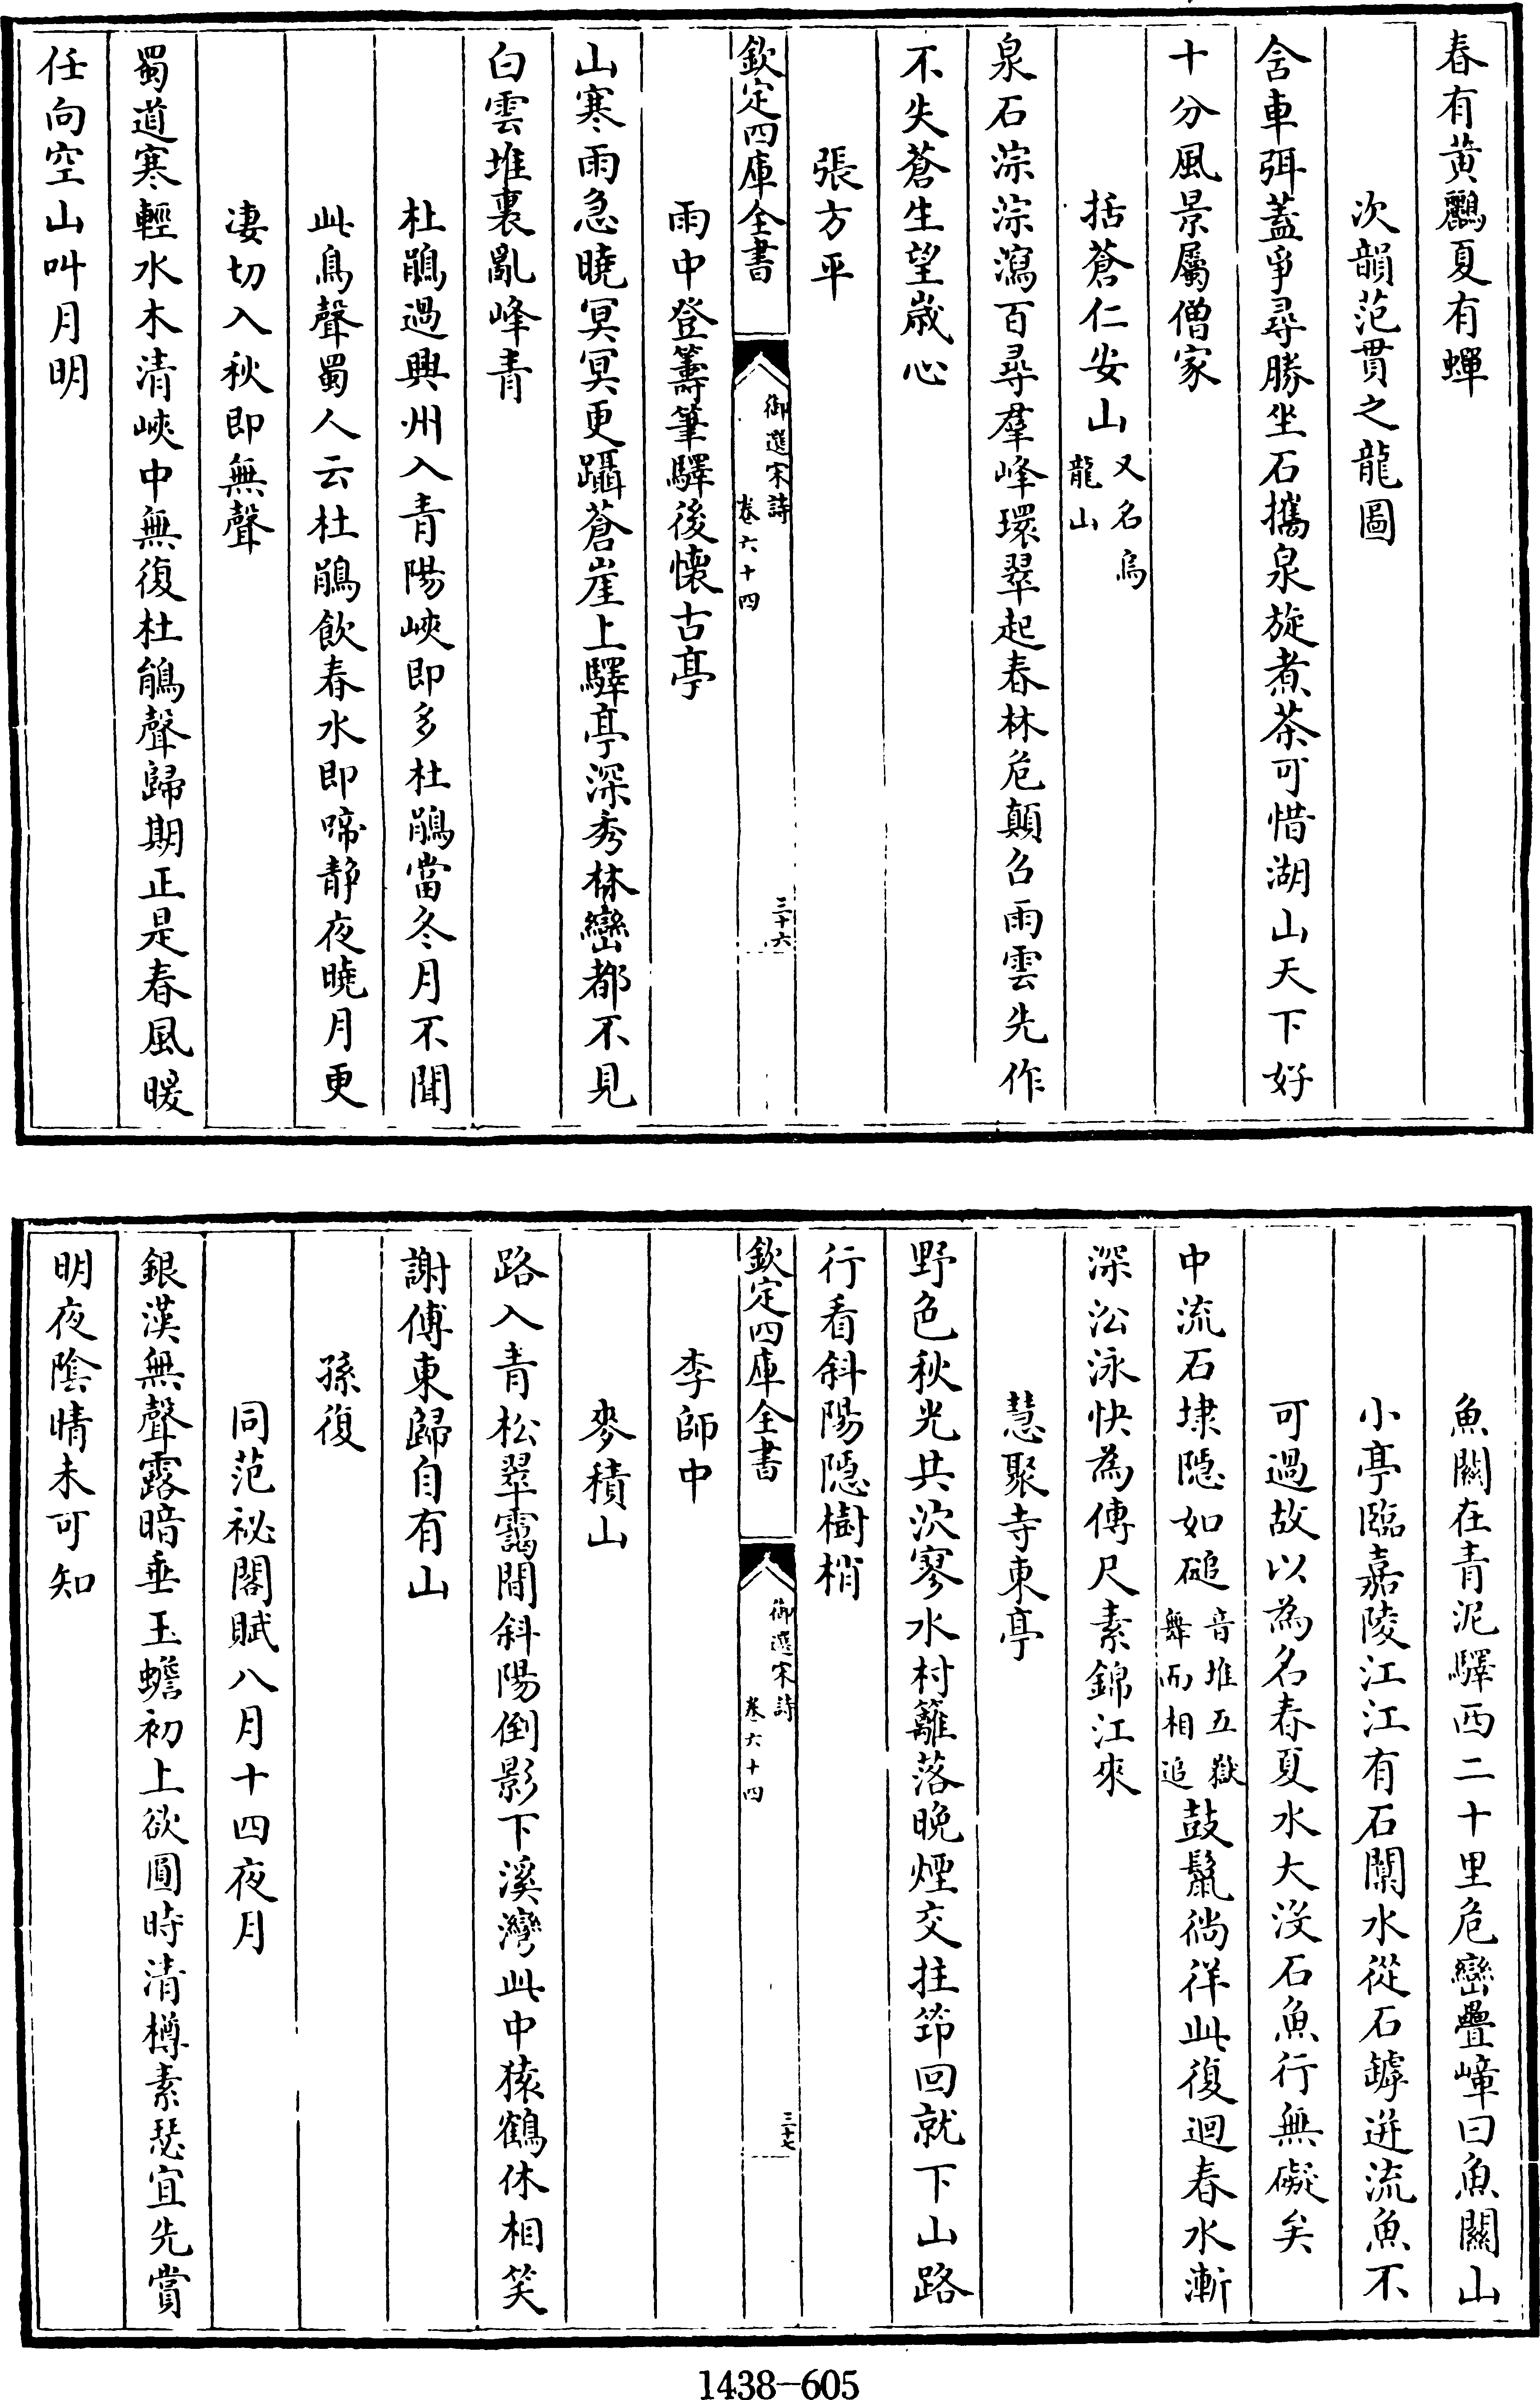 春有黃鸝夏有蟬
次韻范貫之龍圖
舍車弭蓋爭尋勝坐石攜泉旋煮茶可惜湖山天下好
十分風景屬僧家
括蒼仁安山又名烏龍山
泉石淙淙瀉百尋羣峰環翠起春林危顛召雨雲先作
不失蒼生望歲心
張方平
欽定四庫全書
御選宋詩
卷六十四
三十六
雨中登籌筆驛後懷古亭
山寒雨急曉冥冥更躡蒼崖上驛亭深秀林巒都不見
白雲堆裏亂峰青
杜鵑過興州入青陽峽即多杜鵑當冬月不聞
此鳥聲蜀人云杜鵑飲春水即啼靜夜曉月更
淒切入秋即無聲
蜀道寒輕水木清峽中無復杜鵑聲歸期正是春風暖
任向空山叫月明
魚關在青泥驛西二十里危巒疊嶂曰魚關山
小亭臨嘉陵江江有石闌水從石罅迸流魚不
可過故以為名春夏水大沒石魚行無礙矣
中流石埭隱如磓音堆五嶽舞而相追鼓鬣徜徉此復迴春水漸
深㳂泳快為傳尺素錦江來
慧聚寺東亭
野色秋光共泬寥水村籬落晚煙交拄筇回就下山路
行看斜陽隱樹梢
欽定四庫全書
御選宋詩
卷六十四
三十七
李師中
麥積山
路入青松翠靄間斜陽倒影下溪灣此中猿鶴休相笑
謝傅東歸自有山
孫復
同范祕閣賦八月十四夜月
銀漢無聲露暗垂玉蟾初上欲圓時清樽素瑟宜先賞
明夜陰晴未可知
1438-605